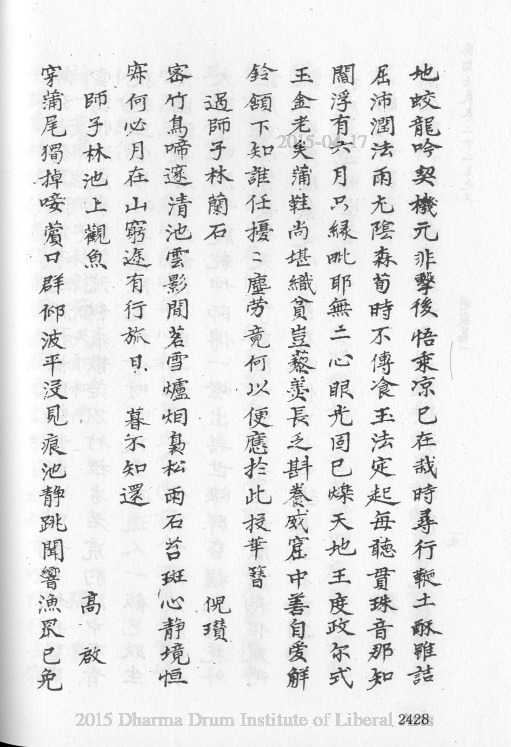 地蛟龍吟契機元非擊後悟乘凉已在哉時尋行軛土酥雖詰
屈沛潤法雨尢陰森荀時不傳飡玉法定起每聽貫珠音那知
閻浮有六月只緣毗耶無二心眼光固已爍天地王度政尔式
玉金老矣蒲鞋尚堪織貧豈藜羮長乏斟養威窟中善自愛觧
鈴頷下知誰任擾〻塵劳竟何以便應扵此投華簪
過師子林蘭石 倪瓚
宻竹鳥啼邃清池雲影間茗雪爐烟裊松雨石苔斑心静境恒
寂何必月在山窮途有行旅日暮尓知還
師子林池上觀魚 髙啟
穿蒲尾獨掉唼薲口群仰波平浸見痕池静跳聞響漁罠已免
2015-04-17
2428
2015 Dharma Drum Institute of Liberal Arts